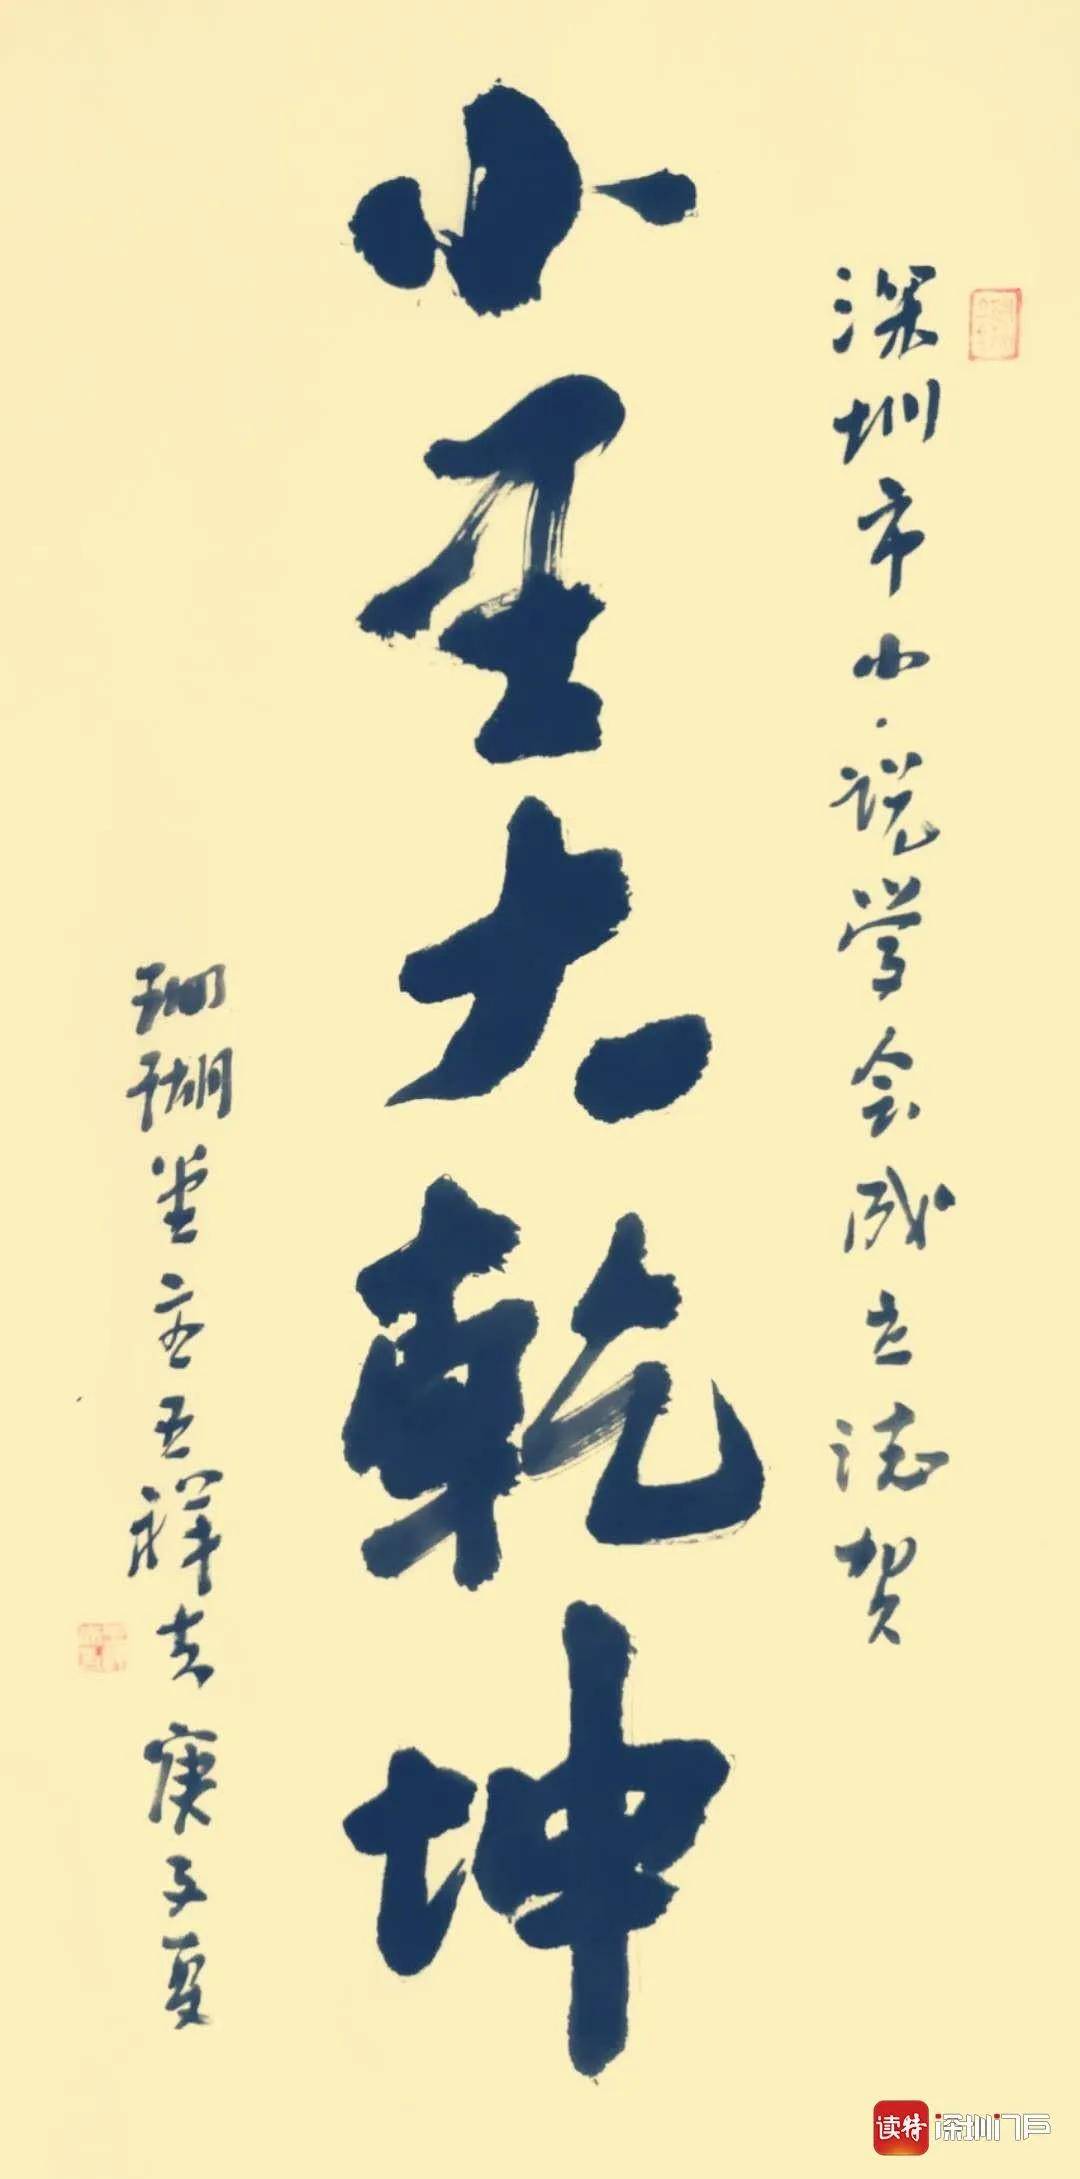 深圳市小小说学会成立誌贺
小大乾坤
珊瑚堂主王祥夫 庚子夏
读特 深圳门户